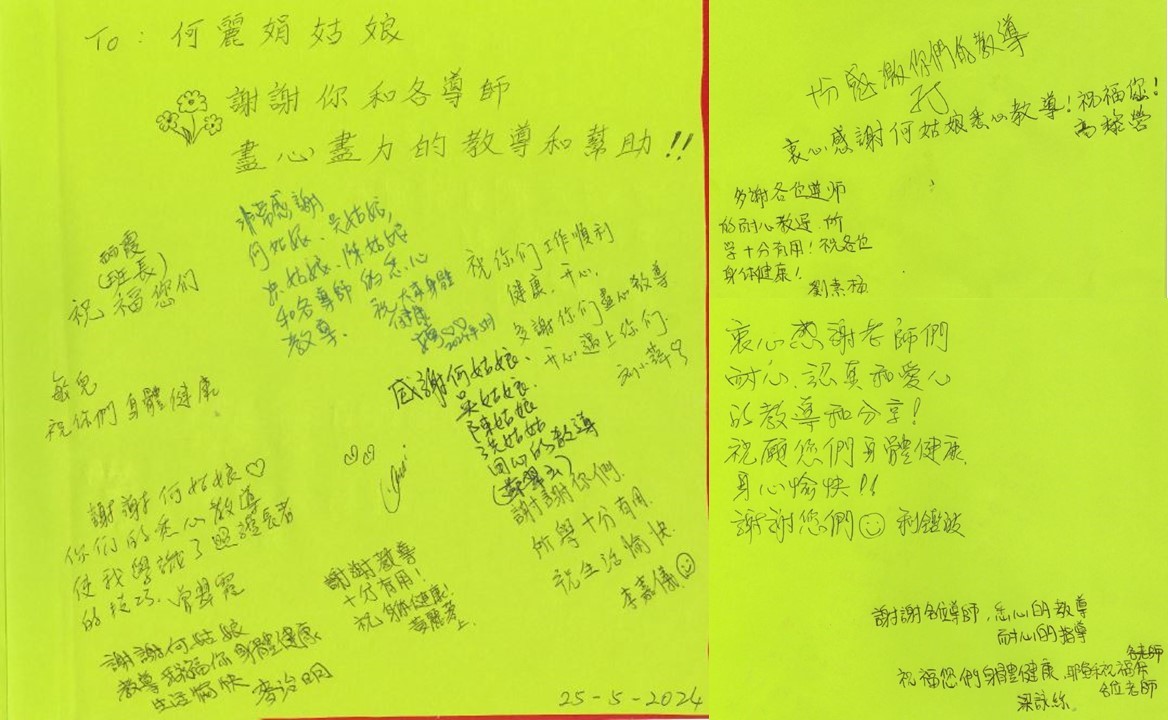 To: 何麗娟姑娘
謝謝你和各導師
盡心盡力的教導和幫助!!
非常感謝
何姑娘、吳姑娘,
冼姑娘、陳姑娘
和各導師的悉心
教導.
祝大家身體
健康
2024年5月
(班長)
祝福您們
祝你们工作順利
健康、开心、
多謝你們盡心教導
开心遇上你们.
敏兒
祝你們身體健康
感謝何姑娘、
吳姑娘.
陳姑娘
冼姑娘
的教導
謝謝何姑娘♡
你们的悉心教導
使我學識了照護長者
的技巧.
謝謝你們.
所學十分有用.
祝生活愉快.
李嘉儀
謝謝教導
十分有用!
祝身体健康!
上.
謝謝何姑娘
教導 祝福你身體健康
生活愉快
25-5-2024
感激你們的教導
衷心感謝何姑娘悉心教導!祝福您!
多謝各位導师
的耐心教導.所
学十分有用!祝各位
身体健康!
衷心感謝老師們
耐心、認真和愛心
的教導和分享!
祝願您們身體健康
身心愉快!!
謝謝您們☺
謝謝各位導師,悉心的教導
耐心的指導
各老師
祝福您們身體健康、耶穌祝福
各位老師
梁詠絲.